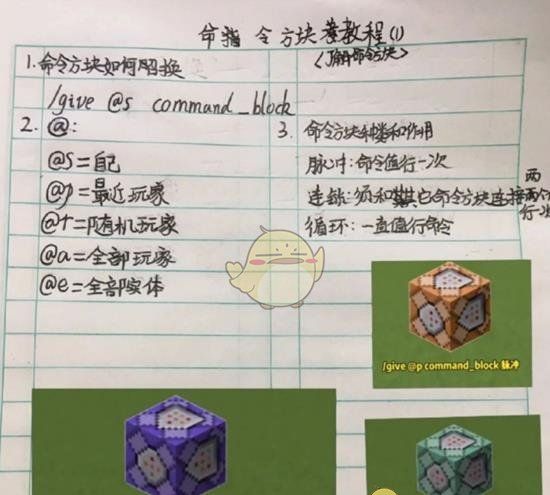 命指令方块类教程(1)
(了解命令方块)
1.命令方块如何召换
/give @s command_block
2. @:
@s=自己
@p=最近玩家
@r=随机玩家
@a=全部玩家
@e=全部实体
3. 命令方块种类和作用
脉冲:命令值行一次
连锁:须和其它命令方块连接两个
行一次
循环:一直值行命令
/give @p command_block 脉冲